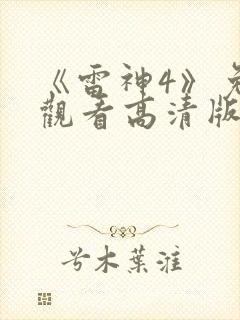 《雷神4》免
觀看高清版
兮木葉漼